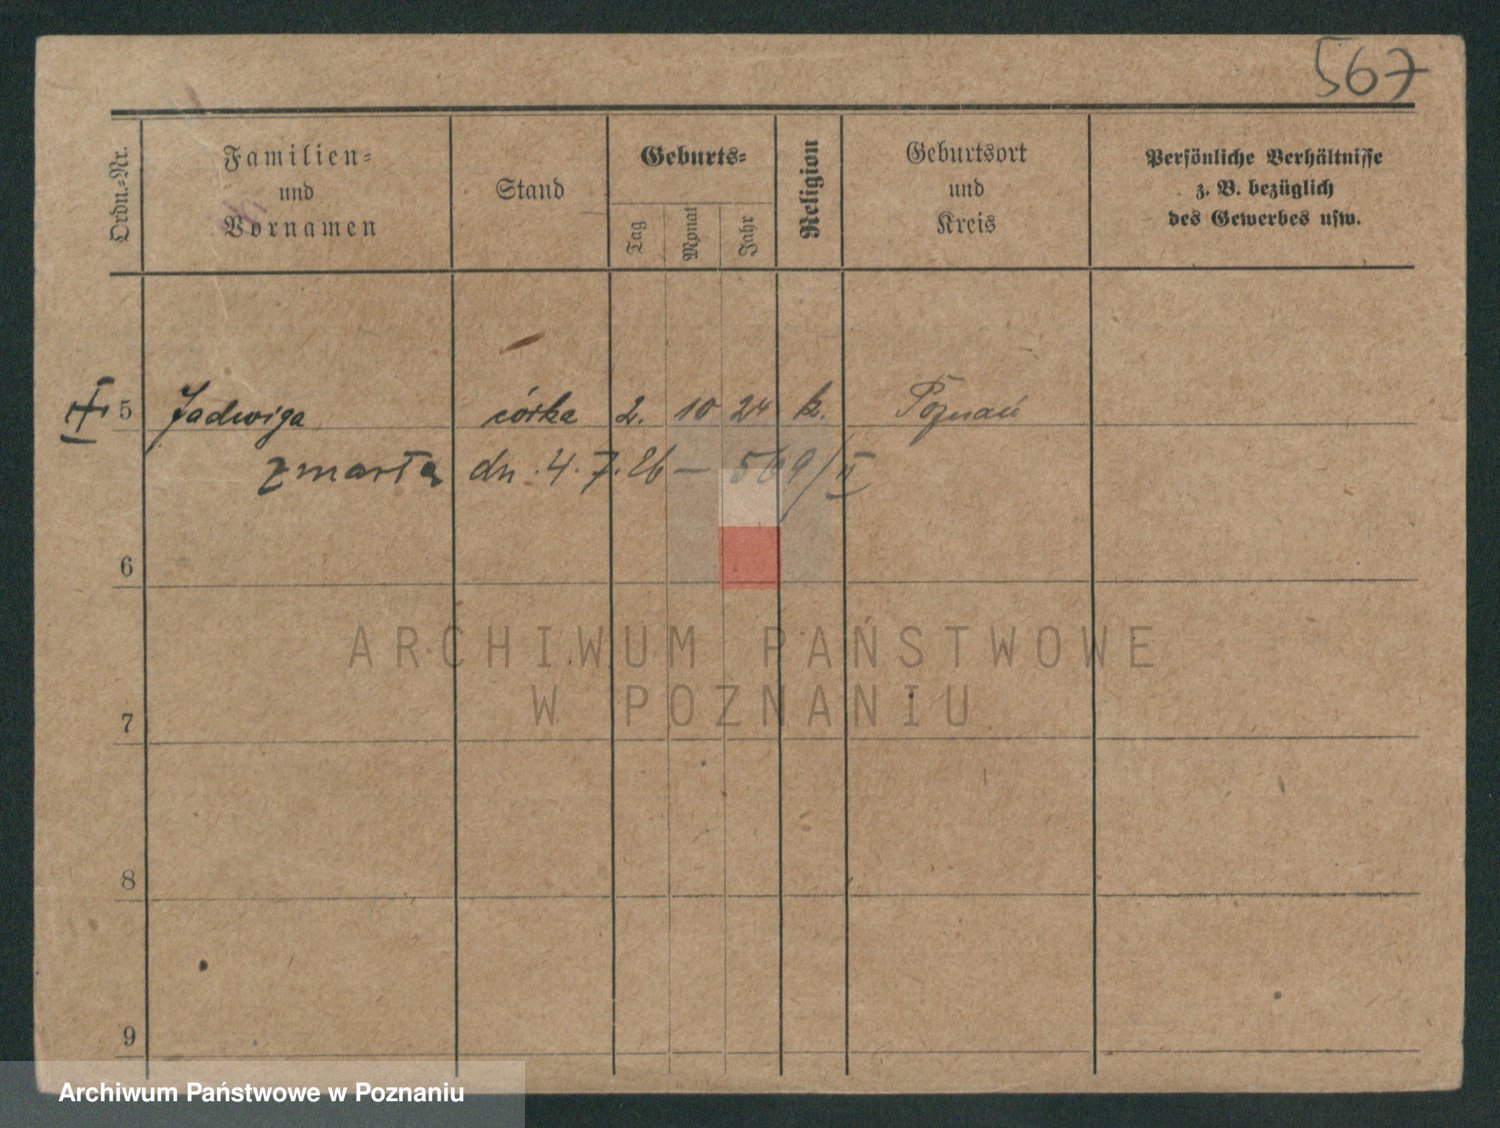 567
Ordn.-Nr.
Familien-
und
Vornamen
Stand
Geburts-
Tag
Monat
Jahr
Religion
Geburtsort
und
Kreis
Persönliche Verhältnisse
z. B. bezüglich
des Gewerbes usw.
5 Jadwiga córka 2. 10 24 k. Poznań
zmarła dn. 4. 7. 26 — 569/II
6
ARCHIWUM PAŃSTWOWE
W POZNANIU
7
8
9
Archiwum Państwowe w Poznaniu